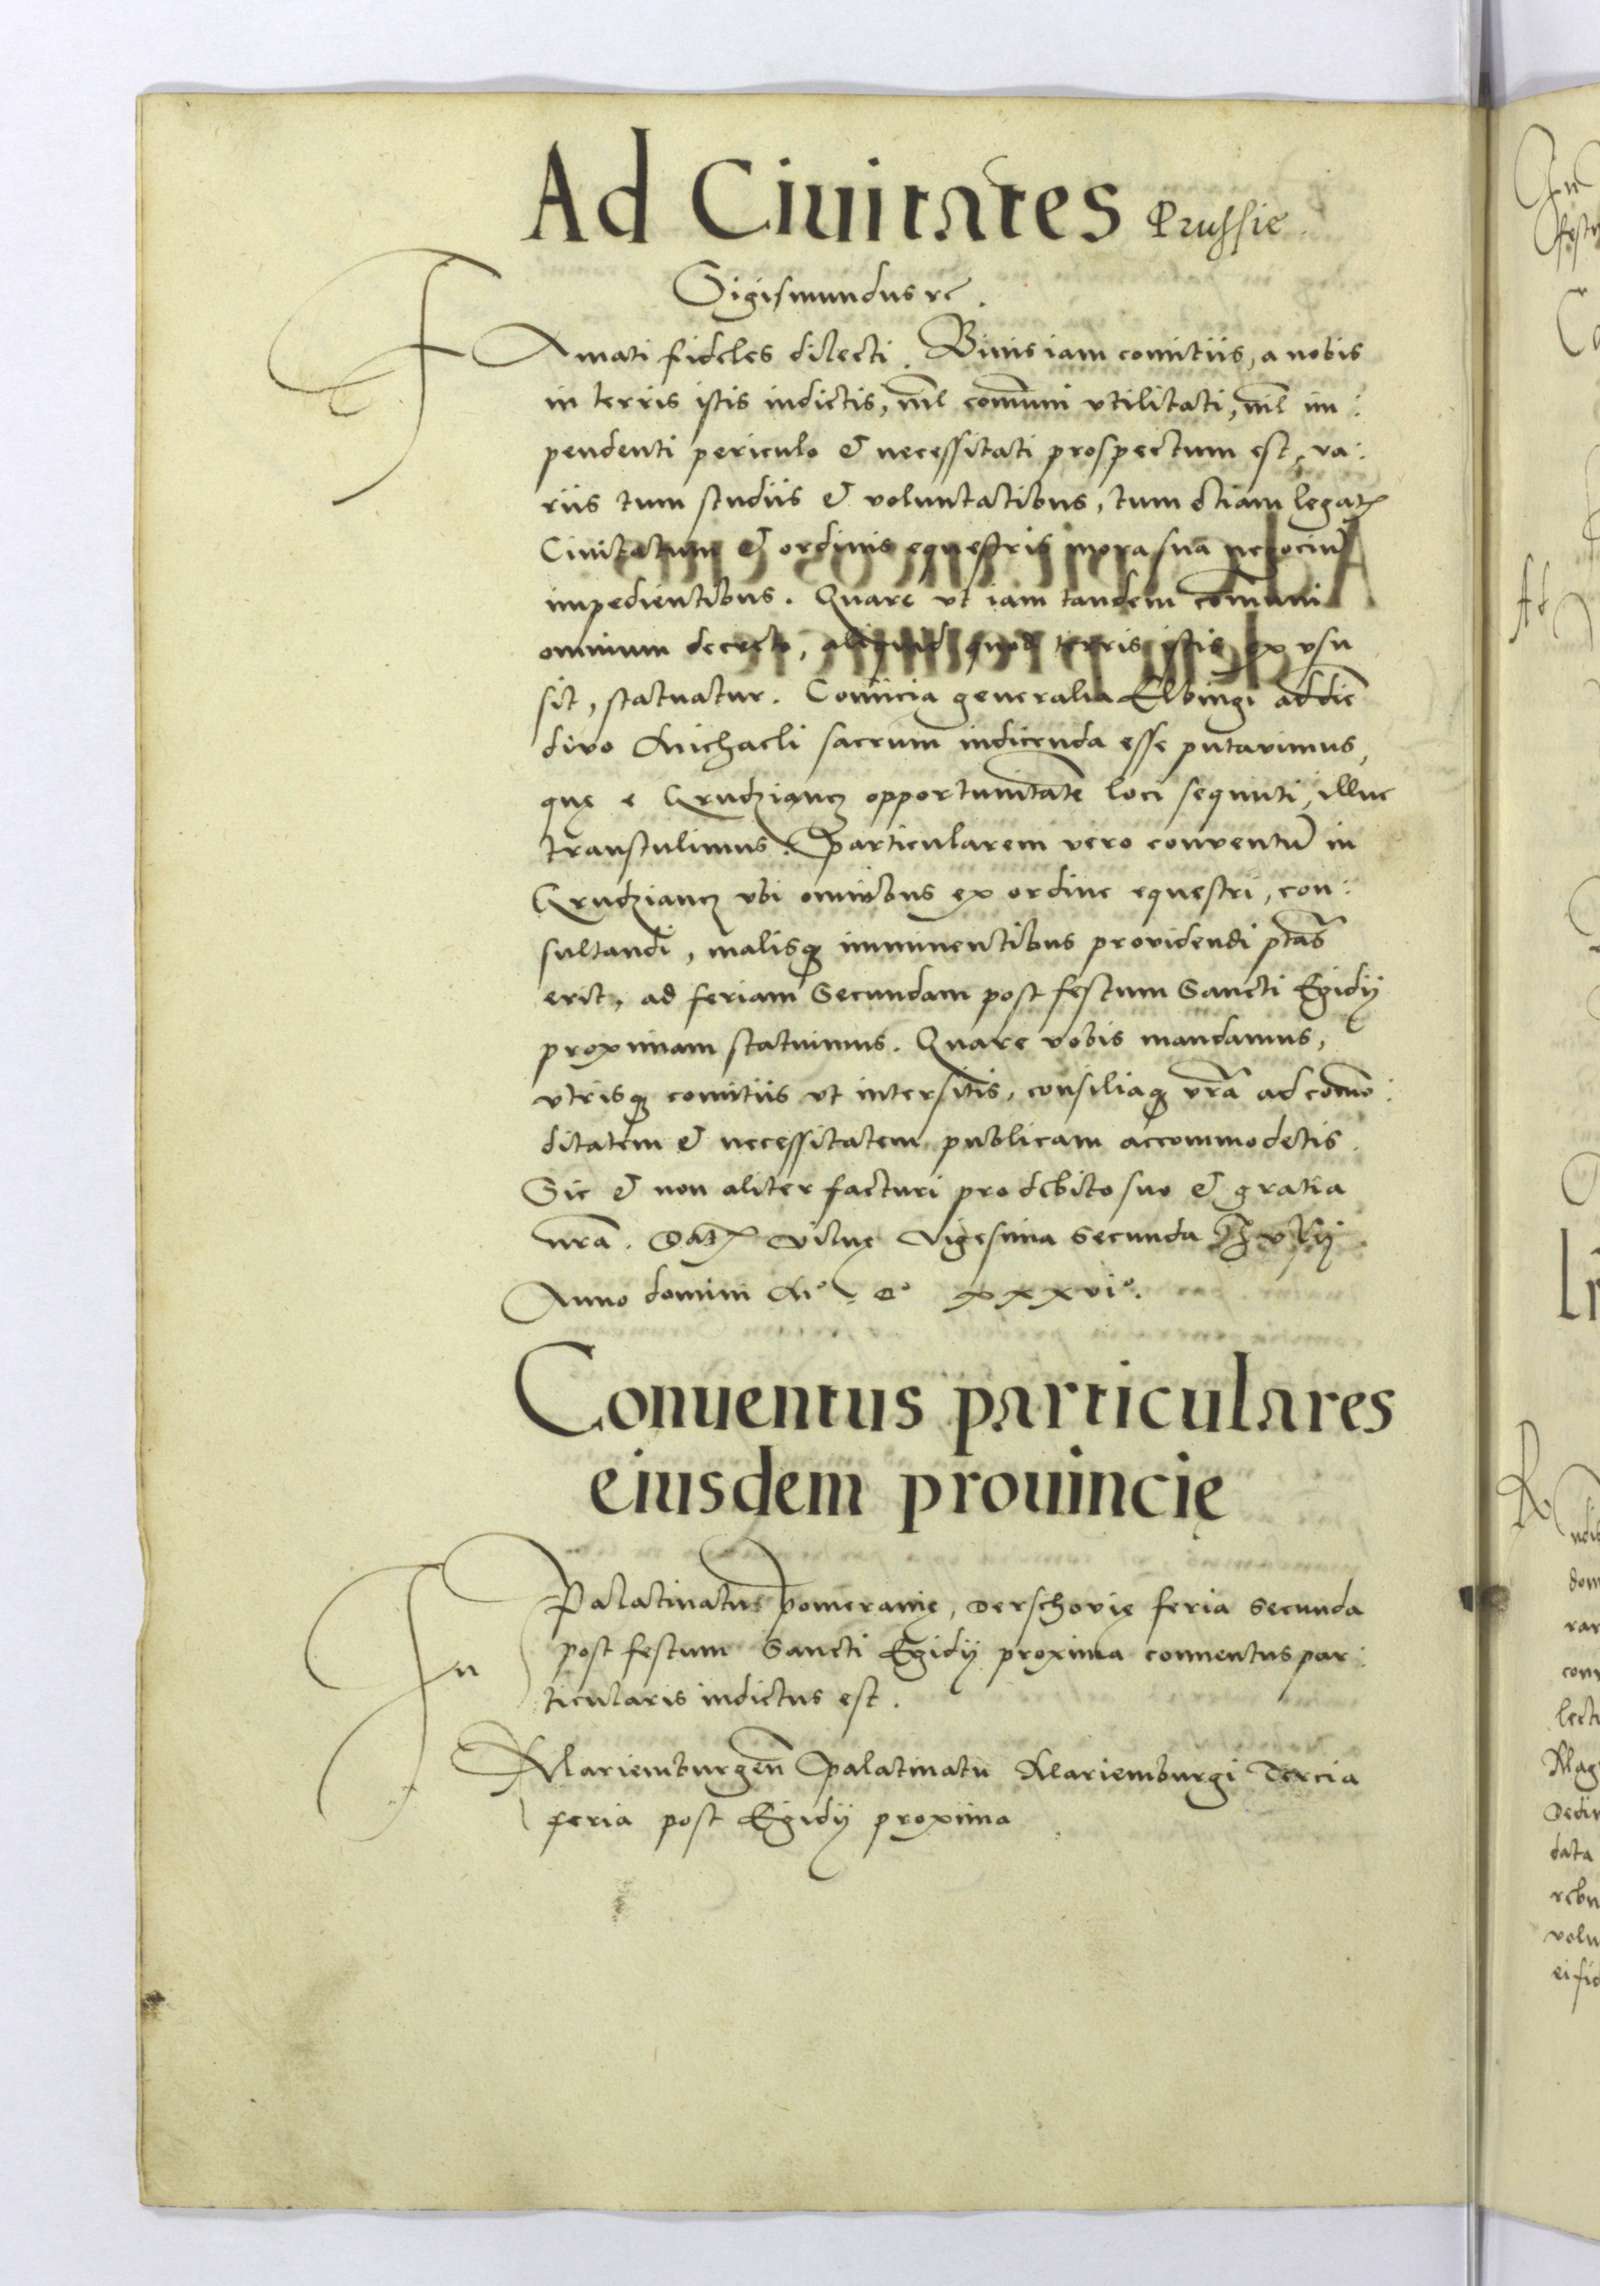 Ad Ciuitates Prussie
Sigismundus rc.
Famati fideles dilecti. Binis iam comitiis, a nobis
in terris istis indictis, nil comuni vtilitati, nil im:
pendenti periculo & necessitati prospectum est, va:
riis tum studiis & voluntatibus, tum etiam legat
Ciuitatum & ordinis equestris mora sua negociu
impedientibus. Quare vt iam tandem comuni
omnium decreto, aliquid quod terris istis ex vsu
sit, statuatur. Comicia generalia Elbingi ad die
divo Michaeli sacrum indicenda esse putavimus,
quę e Grudziancz opportunitate loci sequuti, illuc
transtulimus. Particularem vero conventu in
Grudziancz vbi omnibus ex ordine equestri, con:
sultandi, malisq imminentibus providendi ptas
erit, ad feriam Secundam post festum Sancti Egidij
proximam statuimus. Quare vobis mandamus,
vtrisq comitiis vt intersitis, consiliaq vra ad como:
ditatem & necessitatem publicam accommodetis.
Sic & non aliter facturi pro debito suo & gratia
nra. Dat Vilnę Vigesima Secunda Julij
Anno domini M° D° xxxvi°.
Conuentus particulares
eiusdem prouincię
In Palatinatus Pomeranię, Derschovię feria Secunda
post festum Sancti Egidij proxima conuentus par:
ticularis indictus est.
Mariemburgen Palatinatu Mariemburgi Tercia
feria post Egidij proxima